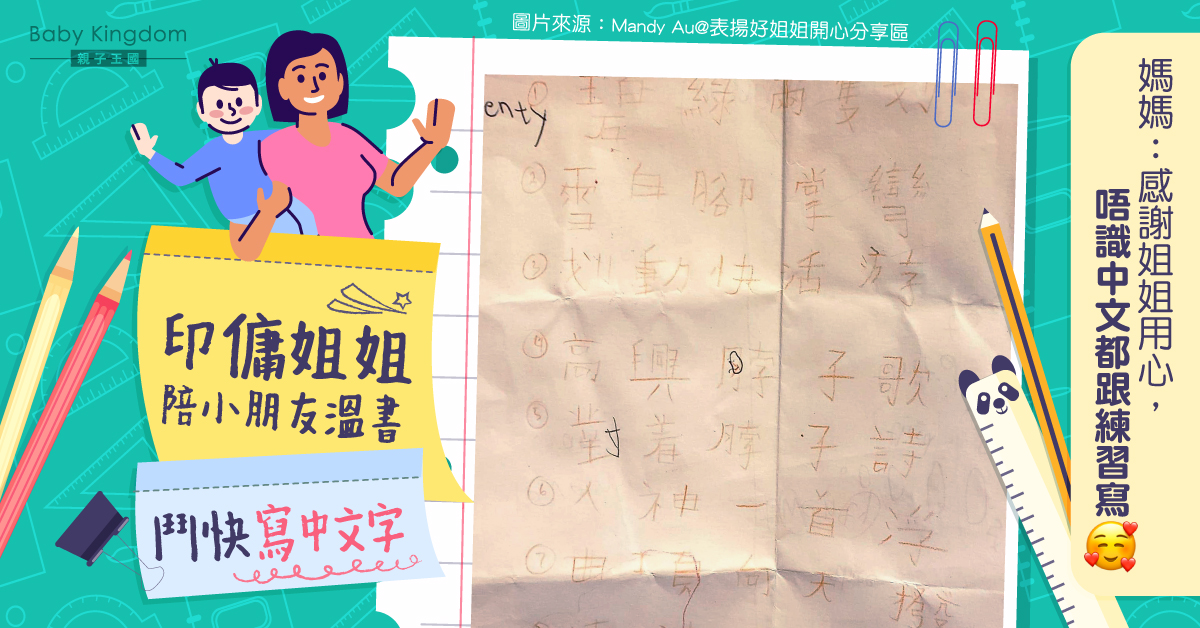 Baby Kingdom
親子王國
圖片來源：Mandy Au@表揚好姐姐開心分享區
印傭姐姐
陪小朋友溫書
鬥快寫中文字
媽媽：感謝姐姐用心，
唔識中文都跟練習寫
enty
① 綠 兩 隻
② 雪 白 腳 掌 彎
③ 划 動 快 活 游
④ 高 興 脖 子 歌
⑤ 着 脖 子 詩
⑥ 人 神 一 首 浮
⑦ 曲 項 向 天 撥